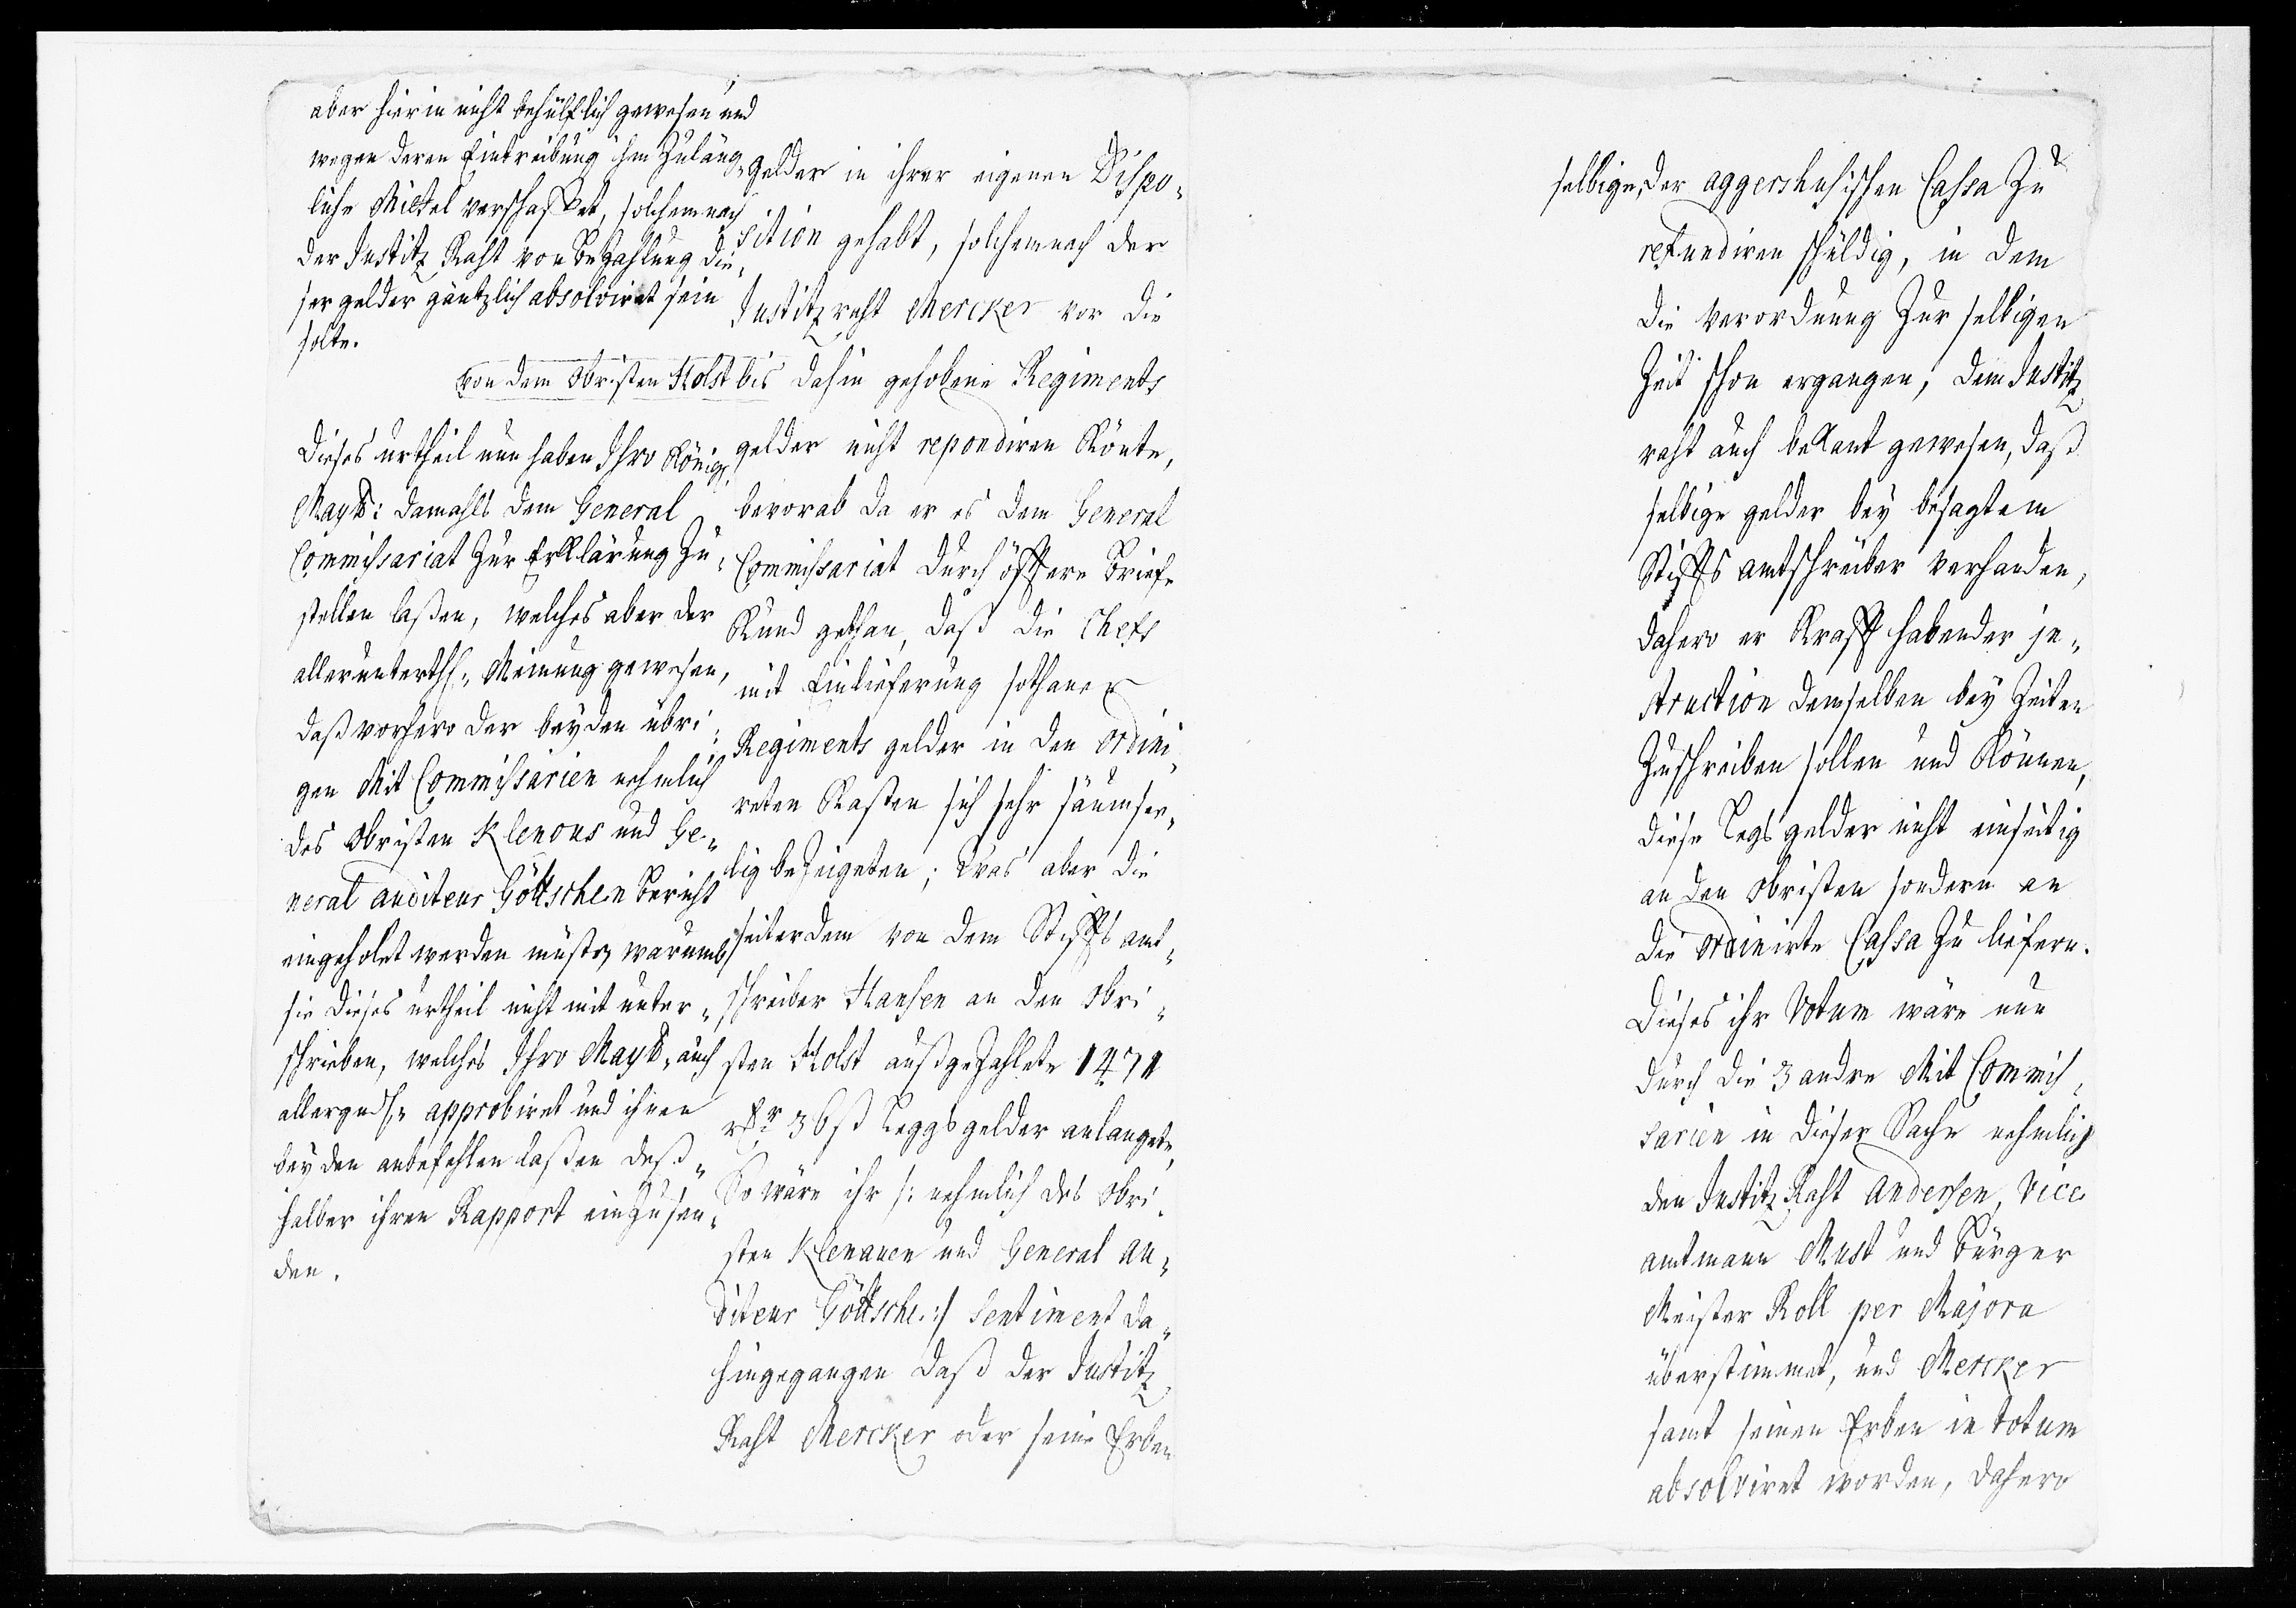 aber hierin nicht behülfflich gewesen und
wegen deren Eintreibung ihm Zuläng„
liche Mittel verschaffet, solchemnach
der Justitz Raht von Bezahlung die„
ser gelder gäntzlich absolviret sein
solte.
Dieses urtheil nun haben Ihro Königl:
Maytt: damahls dem General
Commissariat Zur Erklärung Zu„
stellen laßen, welches aber der
allerunterth: Meinung gewesen,
daß vorhero der beyden übri„
gen Mit Commissarien nehmlich
des Obristen Klenous und Ge„
neral auditeur Göttschen Bericht
eingeholet werden müste, warumb
sie dieses urtheil nicht mit unter„
schrieben, welches Ihro Maytt. auch
allergnds. approbiret und ihnen
beyden anbefehlen laßen deß„
halber ihren Rapport einzusen„
den.
gelder in ihrer eigenen Dispo„
sition gehabt, solchemnach der
Justitzraht Mercker vor die
von dem Obristen Holst bis dahin gehobene Regiments
gelder nicht repondiren Könte,
bevorab da er es dem General
Commissariat durch öfftere Briefe
Kund gethan, daß die Chefs
mit Einlieferung sothaner
Regiments gelder in den ordini„
reten Kasten sich sehr säumse„
lig bezeigeten; Was aber die
seiterdem von dem Stiffts amt„
schreiber Hansen an den Obri„
sten Holst außgezahlete 1471
rdr 36 ß Leggsgelder anlangete,
So wäre ihr /: nehmlich des Obri„
sten Klenauen und General au„
diteur Göttsche :/ Sentiment da„
hingegangen daß der Justitz
Raht Mercker oder seine Erben
selbige der aggershusischen Cassa Zu
refundiren schuldig, in dem
die Verordnung Zur selbigen
Zeit schon ergangen, dem Justitz
raht auch bekant gewesen, daß
selbige gelder bey besagtem
Stiffts amtschreiber verhanden,
dahero er Krafft habender in„
struction demselben bey Zeiten
Zuschreiben sollen und Können,
diese Legs gelder nicht einseitig
an den Obristen sondern an
die ordinirte Cassa Zu liefern.
Dieses ihr Votum wäre nun
durch die 3 andre Mit Commis„
sarien in dieser Sache nehmlich
den Justitz Raht Andersen, Vice
amtmann Must und Bürger
Meister Roll per Majora
überstimmet, und Mercker
samt seinen Erben in totum
absolviret worden, dahero